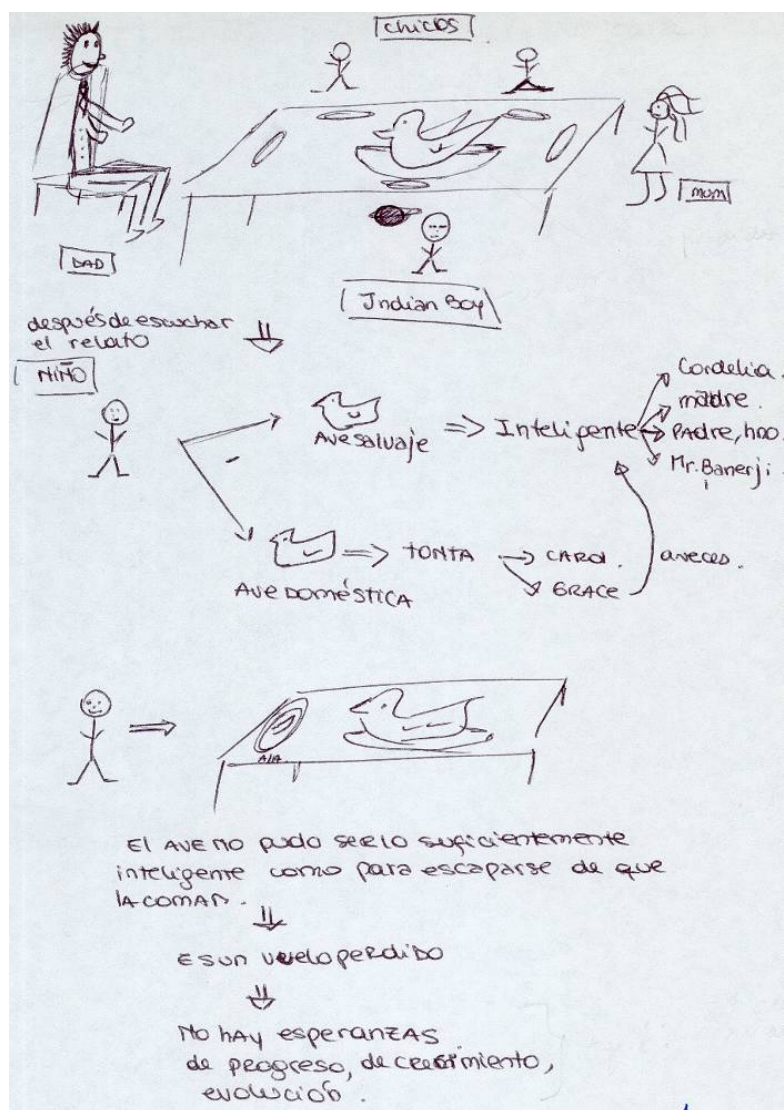 chicos
mum
DAD
Indian Boy
después de escuchar
el relato
NIÑO
Ave salvaje ⇒ Inteligente
Cordelia.
madre.
PAdre, hno.
Mr. Banerji.
Ave Doméstica
⇒ TONTA → CAROL.
GRACE
aveces.
AlA
El AVE no pudo ser lo suficientemente
inteligente como para escaparse de que
lA coman.
Es un vuelo perdido
No hAy esperanzAs
de progreso, de crecimiento,
evolución.